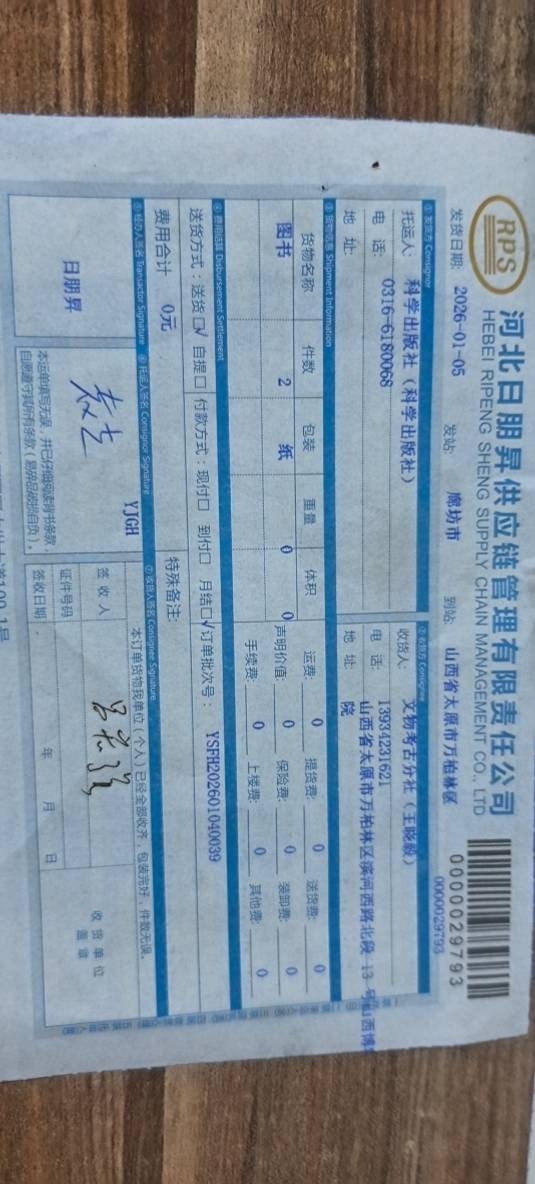 RPS
河北日朋昇供应链管理有限责任公司
HEBEI RIPENG SHENG SUPPLY CHAIN MANAGEMENT CO., LTD
0000029793
0000029793
发货日期: 2026-01-05 发站: 廊坊市 到站: 山西省太原市万柏林区
①发货方 Consignor ②收货方 Consignee
托运人: 科学出版社（科学出版社） 收货人: 文物考古分社（王晓毅）
电 话: 0316-6180068 电 话: 13934231621
地 址: 地 址: 山西省太原市万柏林区滨河西路北段 13 号山西博
院
③货物信息 Shipment Information
货物名称 件数 包装 重量 体积 运费: 0 提货费: 0 送货费: 0
图书 2 纸 0 0 声明价值: 0 保险费: 0 装卸费: 0
手续费: 0 上楼费: 0 其他费: 0
④费用结算 Disbursement Settlement
送货方式: 送货☑ 自提□ 付款方式: 现付□ 到付□ 月结☑ 订单批次号: YSFH202601040039
费用合计 0元 特殊备注:
⑤经办人签名 Transactor Signature ⑥托运人签名 Consignor Signature ⑦收货人签名 Consignee Signature
日朋昇
YJGH
本订单货物我单位（个人）已经全部收齐，包装完好，件数无误。
签收人
证件号码
签收日期: 年 月 日
收货单位
盖章
本运单填写无误，并已仔细阅读背书条款，
自愿遵守其所有条款（易碎品破损自负）。